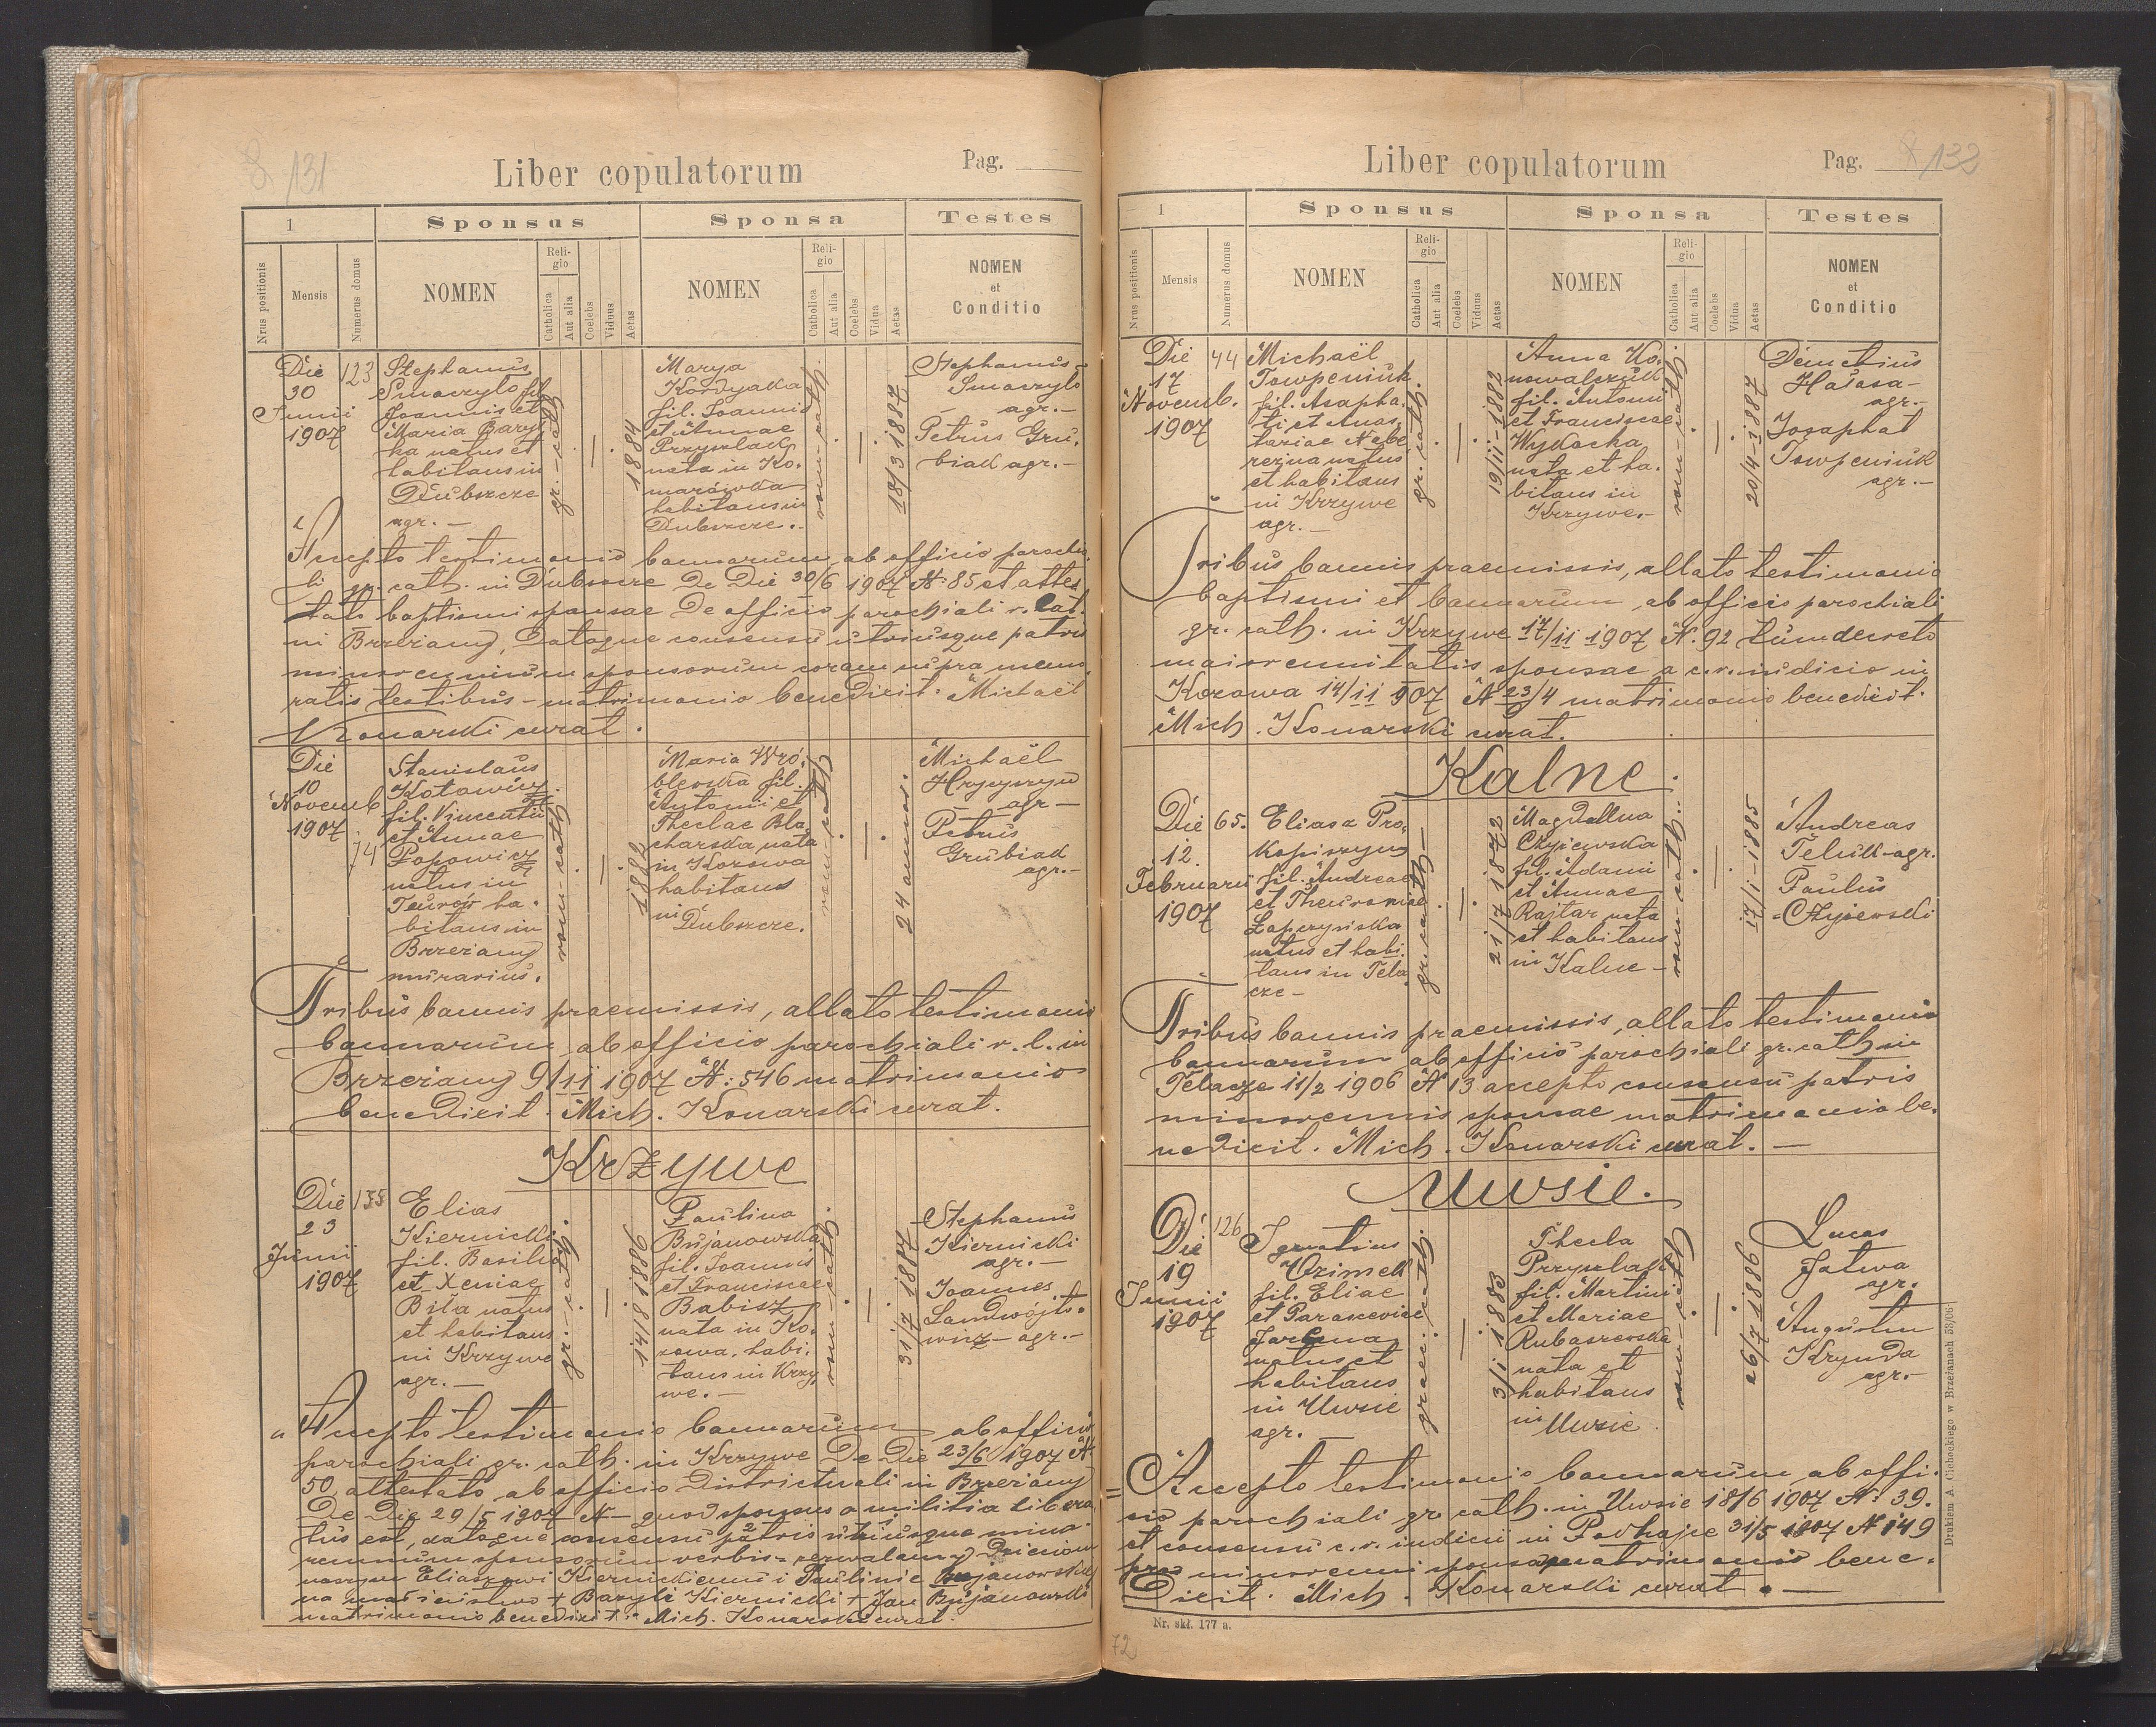 131
Liber copulatorum
Pag.
1
Sponsus
Sponsa
Testes
Nrus positionis
Mensis
Numerus domus
NOMEN
Religio
Catholica
Aut alia
Coelebs
Viduus
Aetas
NOMEN
Religio
Catholica
Aut alia
Coelebs
Vidua
Aetas
NOMEN
et
Conditio
Die
30
Junii
1907
123
Stephanus
Smaczylo fil.
Joannis et
Maria Bary
ka natus et
habitans in
Dubszcze
agr. -
gr. - cath.
1884
Marya
Kordyaka
fil. Joannis
et Annae
Przyszlak
nata in Ko-
marówka
habitans in
Dubszcze.
rom - cath.
18/3 1887
Stephanus
Smaczylo
agr. -
Petrus Gru-
biak agr. -
Accepto testimonio bannorum ab officio parochia-
li gr. cath. in Dubszcze de die 30/6 1907 N: 85 et attes-
tato baptismi sponsae de officio parochiali r. lat.
in Brzeżany, datoque consensu utriusque patris
minorennium sponsorum coram supra memo-
ratis testibus - matrimonio benedixit. Michaël
Konarski curat.
Die
10
Novemb
1907
74
Stanislaus
Kotowicz
fil. Vincentii
et Annae
Popowicz
natus in
Taurow ha-
bitans in
Brzeżany
murarius.
rom - cath
1882
Maria Wró-
blewska fil.
Antonii et
Theclae Bla-
charska nata
in Kozowa
habitans
in
Dubszcze.
rom - cath
24 annor.
Michaël
Hrycyszyn
agr -
Petrus
Grubiak
agr. -
Tribus bannis praemissis, allato testimonio
bannorum ab officio parochiali r. l. in
Brzeżany 9/11 1907 N: 546 matrimonio
benedixit. Mich. Konarski curat.
Krzywe
Die
23
Junii
1907
135
Elias
Kiernicki
fil. Basilio
et Xeniae
Biła natus
et habitans
in Krzywe
agr. -
gr. - cath.
14/8 1886
Paulina
Bujanowska
fil. Joannis
et Franciscae
Babisz
nata in Ko-
zowa, habi-
tans in Krzy-
we. -
rom - cath.
31/7 1887
Stephanus
Kiernicki
agr. -
Joannes
Landwójto-
wicz - agr. -
Accepto testimonio bannorum ab officio
parochiali gr. cath. in Krzywe de die 23/6 1907 N
50, attestato ab officio districtuali in Brzeżany
de die 29/5 1907 N - quod sponsus a militia libera-
tus est, datoque consensu patris utriusque mino-
rennium sponsorum verbis = zezwalamy dzieciom
naszym Eliaszowi Kiernickiemu i Paulinie Bujanowskiej
na małżeństwo + Bazyli Kiernicki + Jan Bujanowski
matrimonio benedixit. Mich. Konarski curat.
Liber copulatorum
Pag. 132
1
Sponsus
Sponsa
Testes
Nrus positionis
Mensis
Numerus domus
NOMEN
Religio
Catholica
Aut alia
Coelebs
Viduus
Aetas
NOMEN
Religio
Catholica
Aut alia
Coelebs
Vidua
Aetas
NOMEN
et
Conditio
Die
17
Novemb.
1907
44
Michaël
Towpeniuk
fil. Asapha-
ti et Anas-
taziae Nebe
rezna natus
et habitans
in Krzywe
agr. -
gr. cath.
19/11 - 1882
Anna Ko-
nowalczuk
fil. Antonii
et Franciscae
Wysocka
nata et ha-
bitans in
Krzywe. -
rom - cath.
20/4 - 1887
Demetrius
Hałasa -
agr. -
Josaphat
Towpeniuk
agr. -
Tribus bannis praemissis, allato testimonio
baptismi et bannorum ab officio parochiali
gr. cath. in Krzywe 17/11 1907 N. 92 tum decreto
maiorennitatis sponsae a c. r. iudicio in
Kozowa 14/11 907 N 23/4 matrimonio benedixit.
Mich. Konarski curat.
Kalne.
Die
12
Februarii
1907
65.
Elias a Pro-
kopiszyn
fil. Andreae
et Theuroniae
Łapczyńska
natus et habi-
tans in Tela-
cze -
gr. cath -
21/7 1872
Magdalena
Czyżewska
fil. Adami
et Annae
Rajtar nata
et habitans
in Kalne -
rom - cath.
17/1 - 1885
Andreas
Teluk - agr.
Paulus
Czyżewski
Tribus bannis praemissis, allato testimonio
bannorum ab officio parochiali gr. cath in
Telacze 11/2 1906 N 13 accepto consensu patris
minorennis sponsae matrimonio be-
nedixit. Mich. Konarski curat. -
Uwsie.
Die
19
Junii
1907
126
Ignatius
Ozimek
fil. Eliae
et Parasceviae
Jarema
natus et
habitans
in Uwsie
agr. -
graec. cath.
3/1 - 1883
Thecla
Przyszlak
fil. Martini
et Mariae
Rubaszewska
nata et
habitans
in
Uwsie
rom - cath
26/7 1886
Lucas
Jatwa
agr.
Augustin
Krynda
agr. -
Accepto testimonio bannorum ab offi-
cio parochiali gr. cath. in Uwsie 18/6 1907 N: 39.
et consensu c. r. iudicii in Podhajce 31/5 1907 N 149
pro minorenni sponsa matrimonio bene-
dixit. Mich. Konarski curat. -
Nr. skł. 177 a.
Drukiem A Cichockiego w Brzeżanach 53/06
72